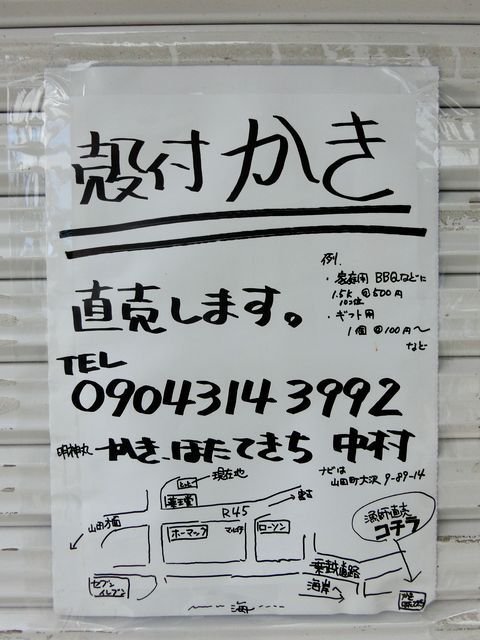 殻付かき
直売します。
例.
・家庭用 BBQなどに
1.5k @500円
10コ位
・ギフト用
1個 @100円〜
など
TEL
09043143992
明神丸 かき、ほたてきち 中村
ナビは
山田町大沢 9-89-14
現在地
薬王堂
R45
宮古
山田方面
ホーマック
マルイチ
ローソン
漁師直売
コチラ
セブン
イレブン
海岸へ
海